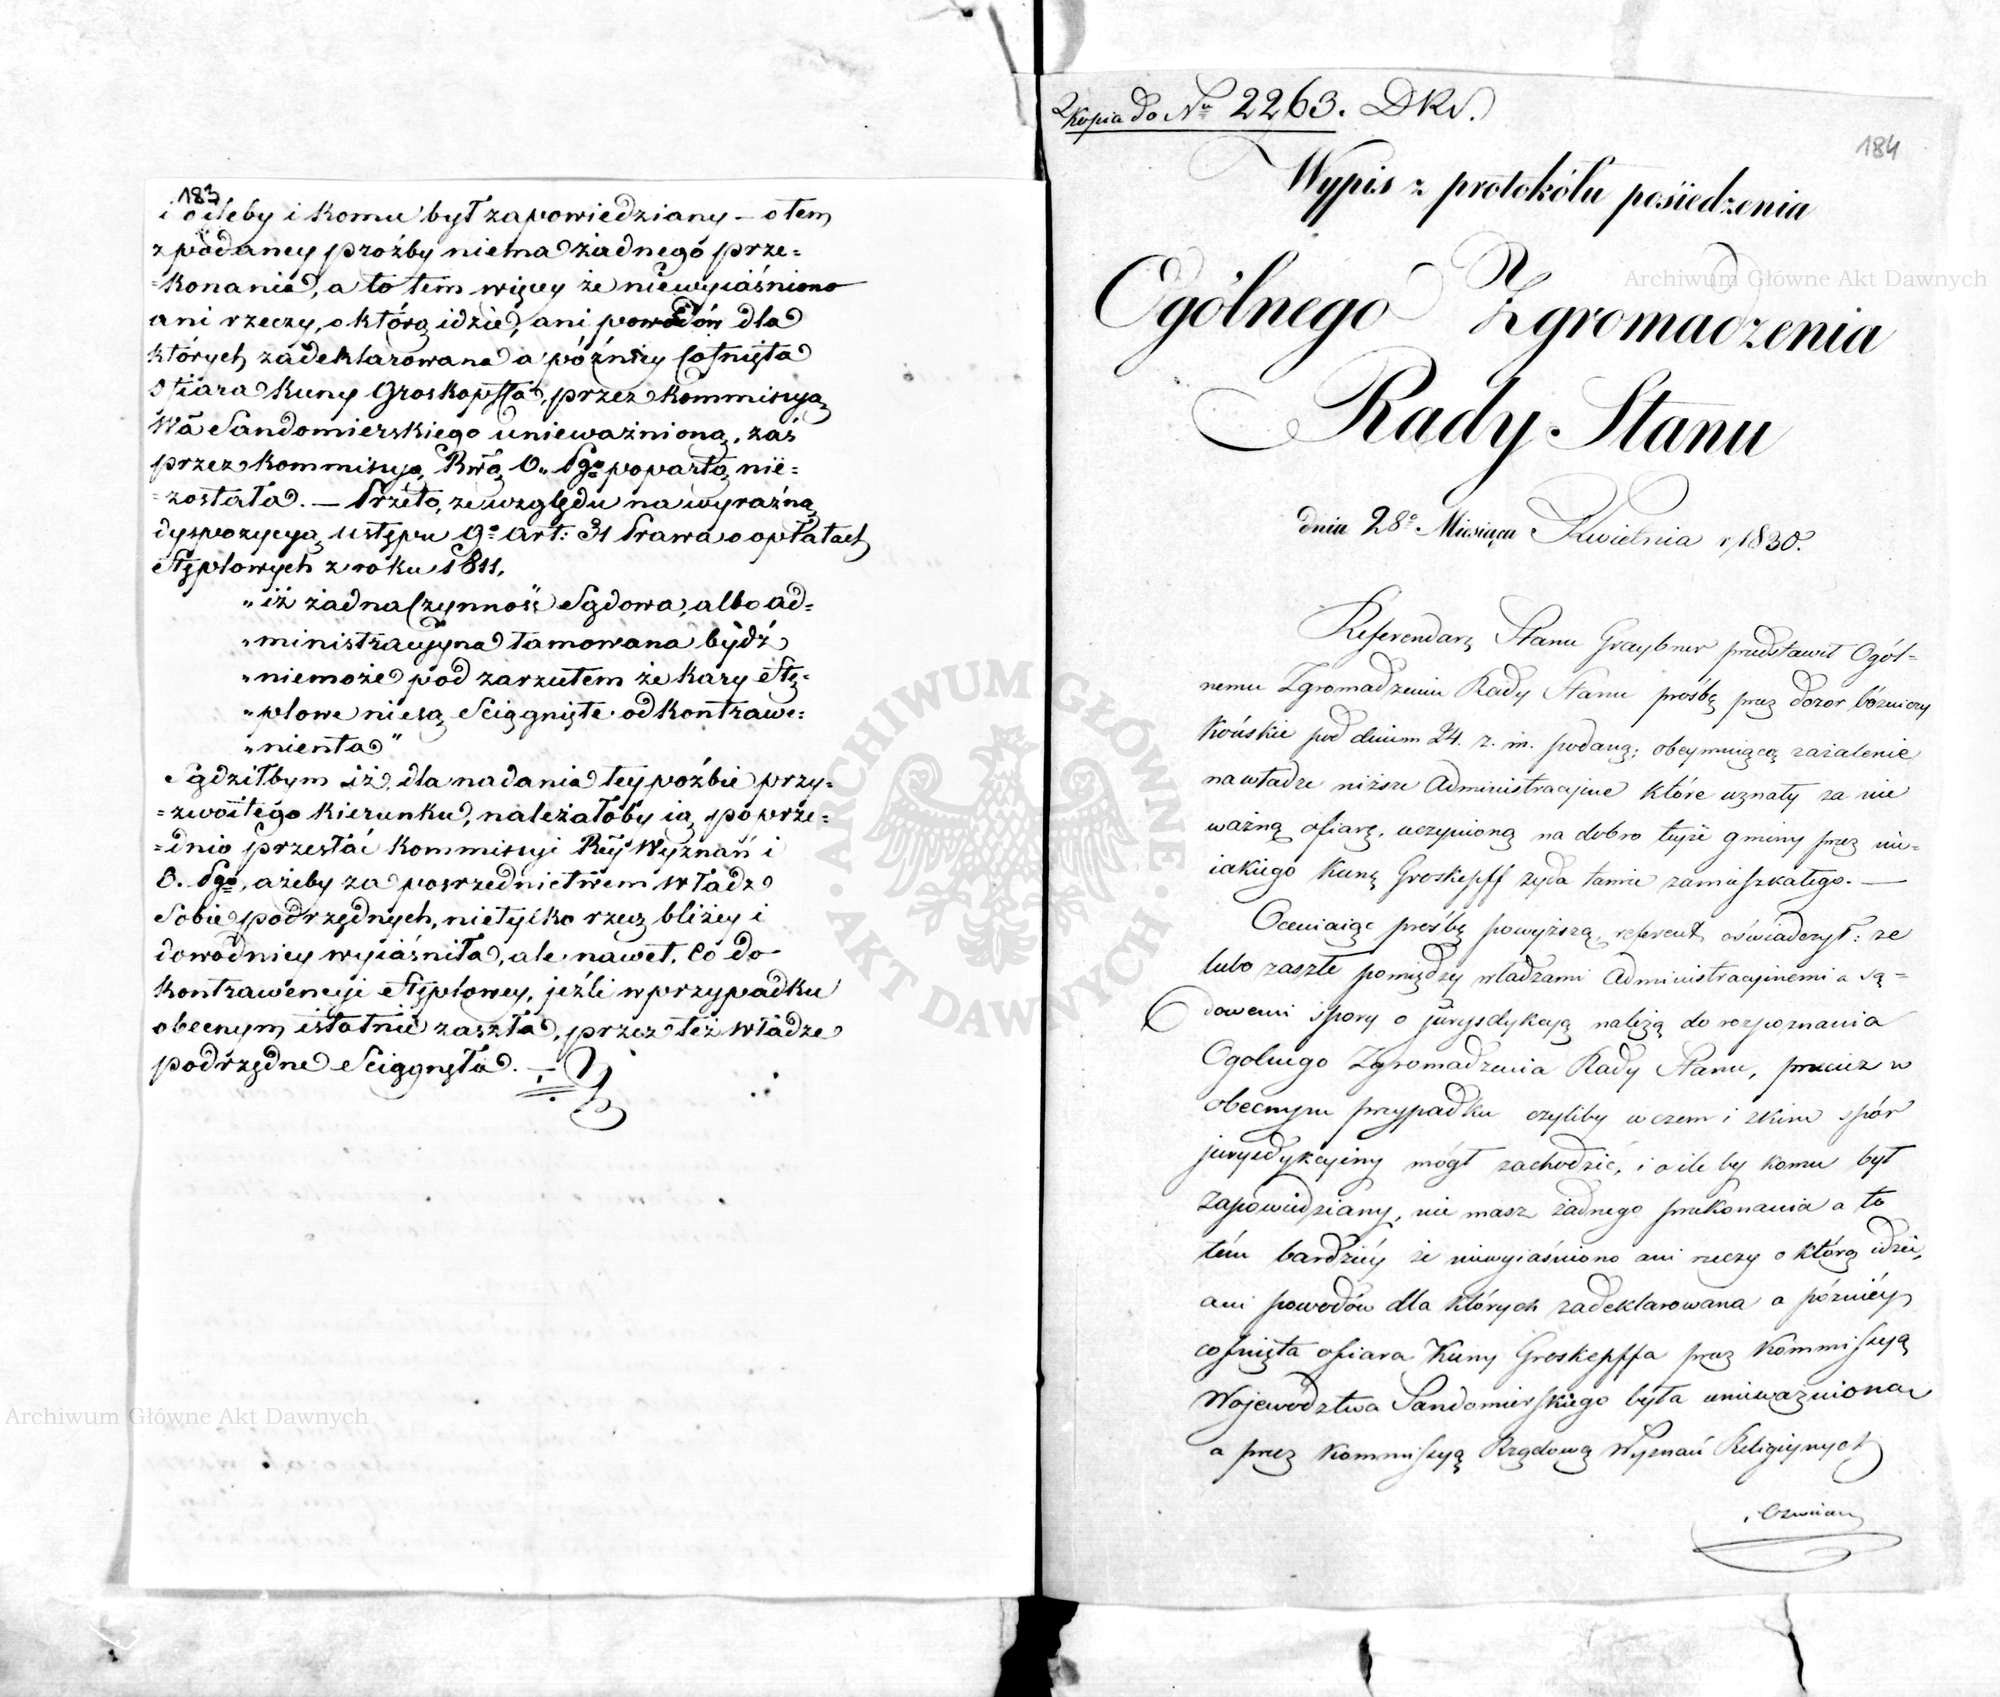 183
i o ileby i komu był zapowiedziany – o tem
z podaney proźby niema żadnego prze=
=konania, a to tem więcey że niewyiáśniono
ani rzeczy, o którą idzie, ani powodów dla
których zadeklarowana a późniey Cofnięta
ofiara Kuny Groskopffa, przez Kommissyą
Wa Sandomierskiego unieważnioną, zaś
przez Kommissyą Rwą O. Pgo popartą nie=
=została. – Przeto, ze względu na wyraźną
dyspozycyą ustępu 9o Art: 31 Prawa o opłatach
Stęplowych z roku 1811,
„iż żadna Czynność Sądowa, albo ad=
„ministracyjna tamowana bydź
„niemoże pod zarzutem że kary Stę=
„plowe niesą Sciągnięte od kontrawe=
„nienta”
Sądziłbym iż, dla nadania tey poźbie przy=
=zwoitego kierunku, należałoby ią, poprze=
=dnio przesłać Kommissyi Rej Wyznań i
O. Pgo, ażeby za pośrzednictwem władz
Sobie podrzędnych, nietylko rzecz bliżey i
dowodniey wyiáśniła, ale nawet, Co do
kontrawencyi Stęplowey, jeźli w przypadku
obecnym istotnie zaszła, przez też władze
podrzędne Sciągnęła. –
Kopia do Nu 2263. DKS.
184
Wypis z protokółu posiedzenia
Ogólnego Zgromadzenia
Rady Stanu
dnia 28o Miesiąca Kwietnia r, 1830.
Referendarz Stanu Graybner przedstawił Ogól=
nemu Zgromadzeniu Rady Stanu prośbę przez dozor bóżniczy
Końskie pod dniem 24. z. m. podaną; obeymuiącą zażalenie
na władze niższe Administracyine które uznały za nie
ważną ofiarę, uczynioną na dobro teyże gminy przez nie=
iakiego Kunę Groskepff żyda tamże zamieszkałego. —
Oceniaiąc prośbę powyższą, referent oświadczył: że
lubo zaszłe pomiędzy władzami Administracyinemi a są=
dowemi spory o jurysdykcyą należą do rozpoznania
Ogolnego Zgromadzenia Rady Stanu, przecież w
obecnym przypadku czyliby w czem i zkim spór
juryzdykcyiny mógł zachodzić, i o ile by komu był
zapowiedziany, nie masz żadnego przekonania a to
tém bardziéy że niewyiaśniono ani rzeczy o którą idzie,
ani powodów dla których zadeklarowana a późniéy
cofnięta ofiara Kuny Groskepffa przez Kommissyą
Województwa Sandomierskiego była unieważniona
a przez Kommissyą Rządową Wyznań Religiynych